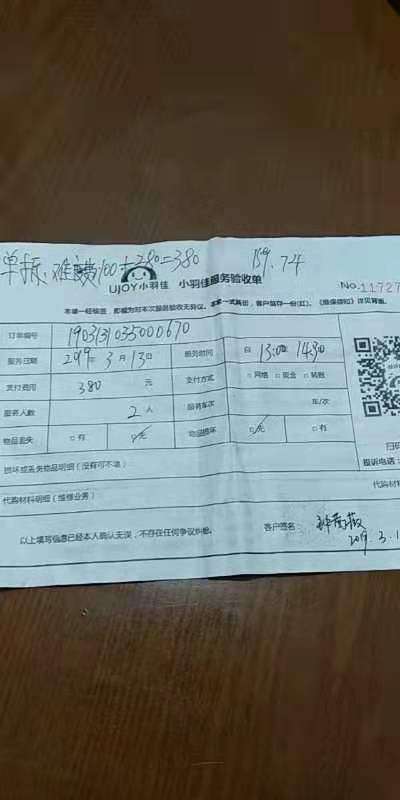 单据：难度费100+280=380 159.74
UJOY小羽佳 小羽佳服务验收单
No.11727
本单一经签签，即视为对本次服务验收无异议。本单一式两份，客户留存一份(红)。《维保须知》详见背面。
订单编号 1903131035000670
服务日期 2019年3月13日 服务时间 自 13:00 14:30
支付费用 380 元 支付方式 □网络 □现金 □转账
服务人数 2人 服务车次 年/次
物品丢失 □有 □无 物品损坏 □无 □有
扫码
投诉电话：
损坏或丢失物品明细（没有可不填）
代购材料明细（维修业务） 代购材料
以上填写信息已经本人确认无误，不存在任何争议纠纷。 客户签名：
2019.3.1